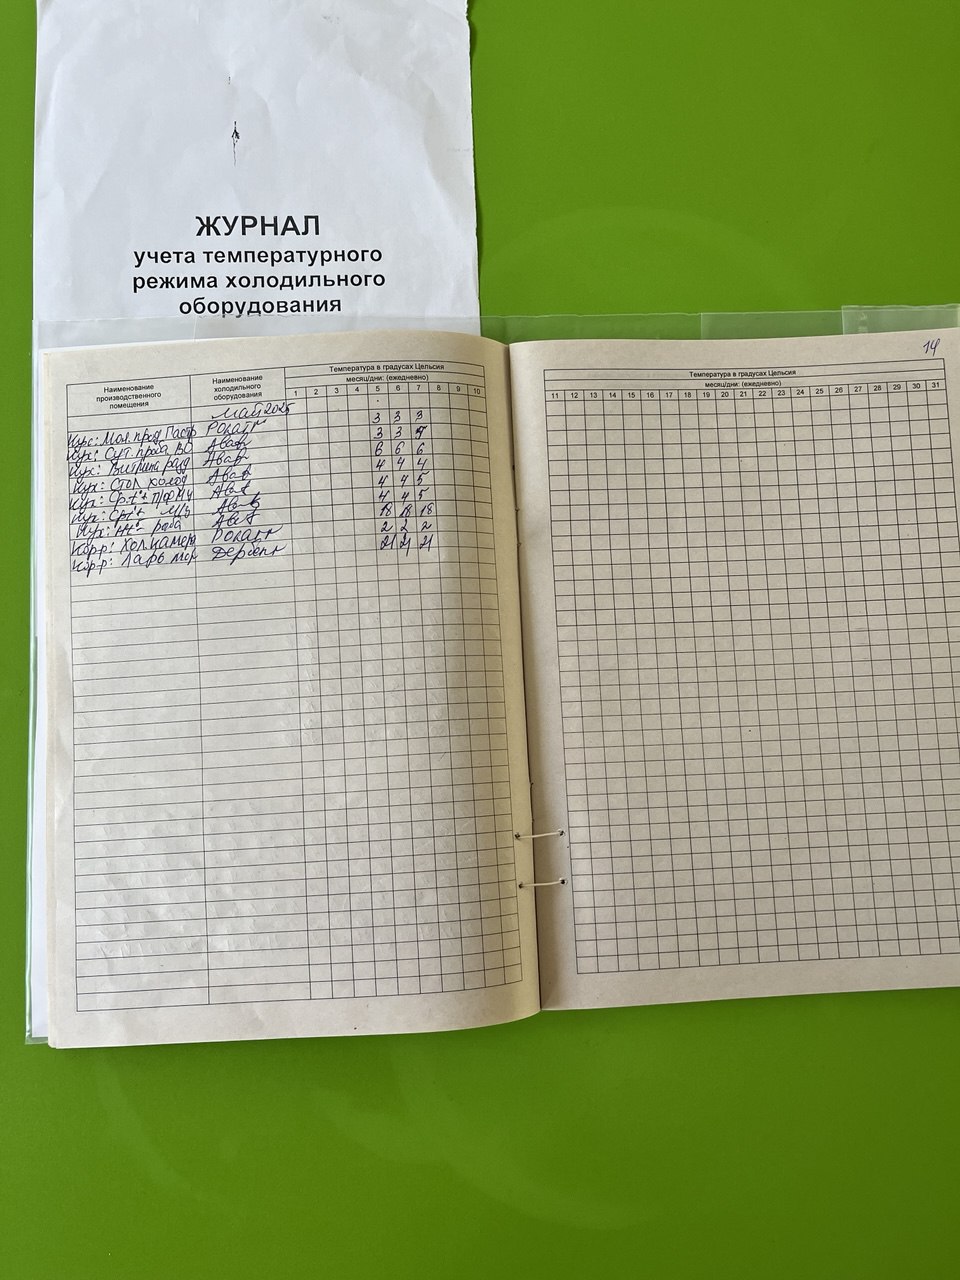 ЖУРНАЛ
учета температурного
режима холодильного
оборудования
14
Наименование производственного помещения
Наименование холодильного оборудования
Температура в градусах Цельсия
месяц/дни: (ежедневно)
1 2 3 4 5 6 7 8 9 10
Май 2025
Кух: Мол. прод Гастр 3 3 3
Кух: Сут. проба ВО 3 3
Кух: Витрина разд 6 6 6
Кух: Стол холод 4 4 4
Кух: 4 4 5
Кух: 4 4 5
Кух: 18 18 18
Корр: Хол камера 2 2 2
Корр: Ларь мор Дербент 21 21 21
Температура в градусах Цельсия
месяц/дни: (ежедневно)
11 12 13 14 15 16 17 18 19 20 21 22 23 24 25 26 27 28 29 30 31